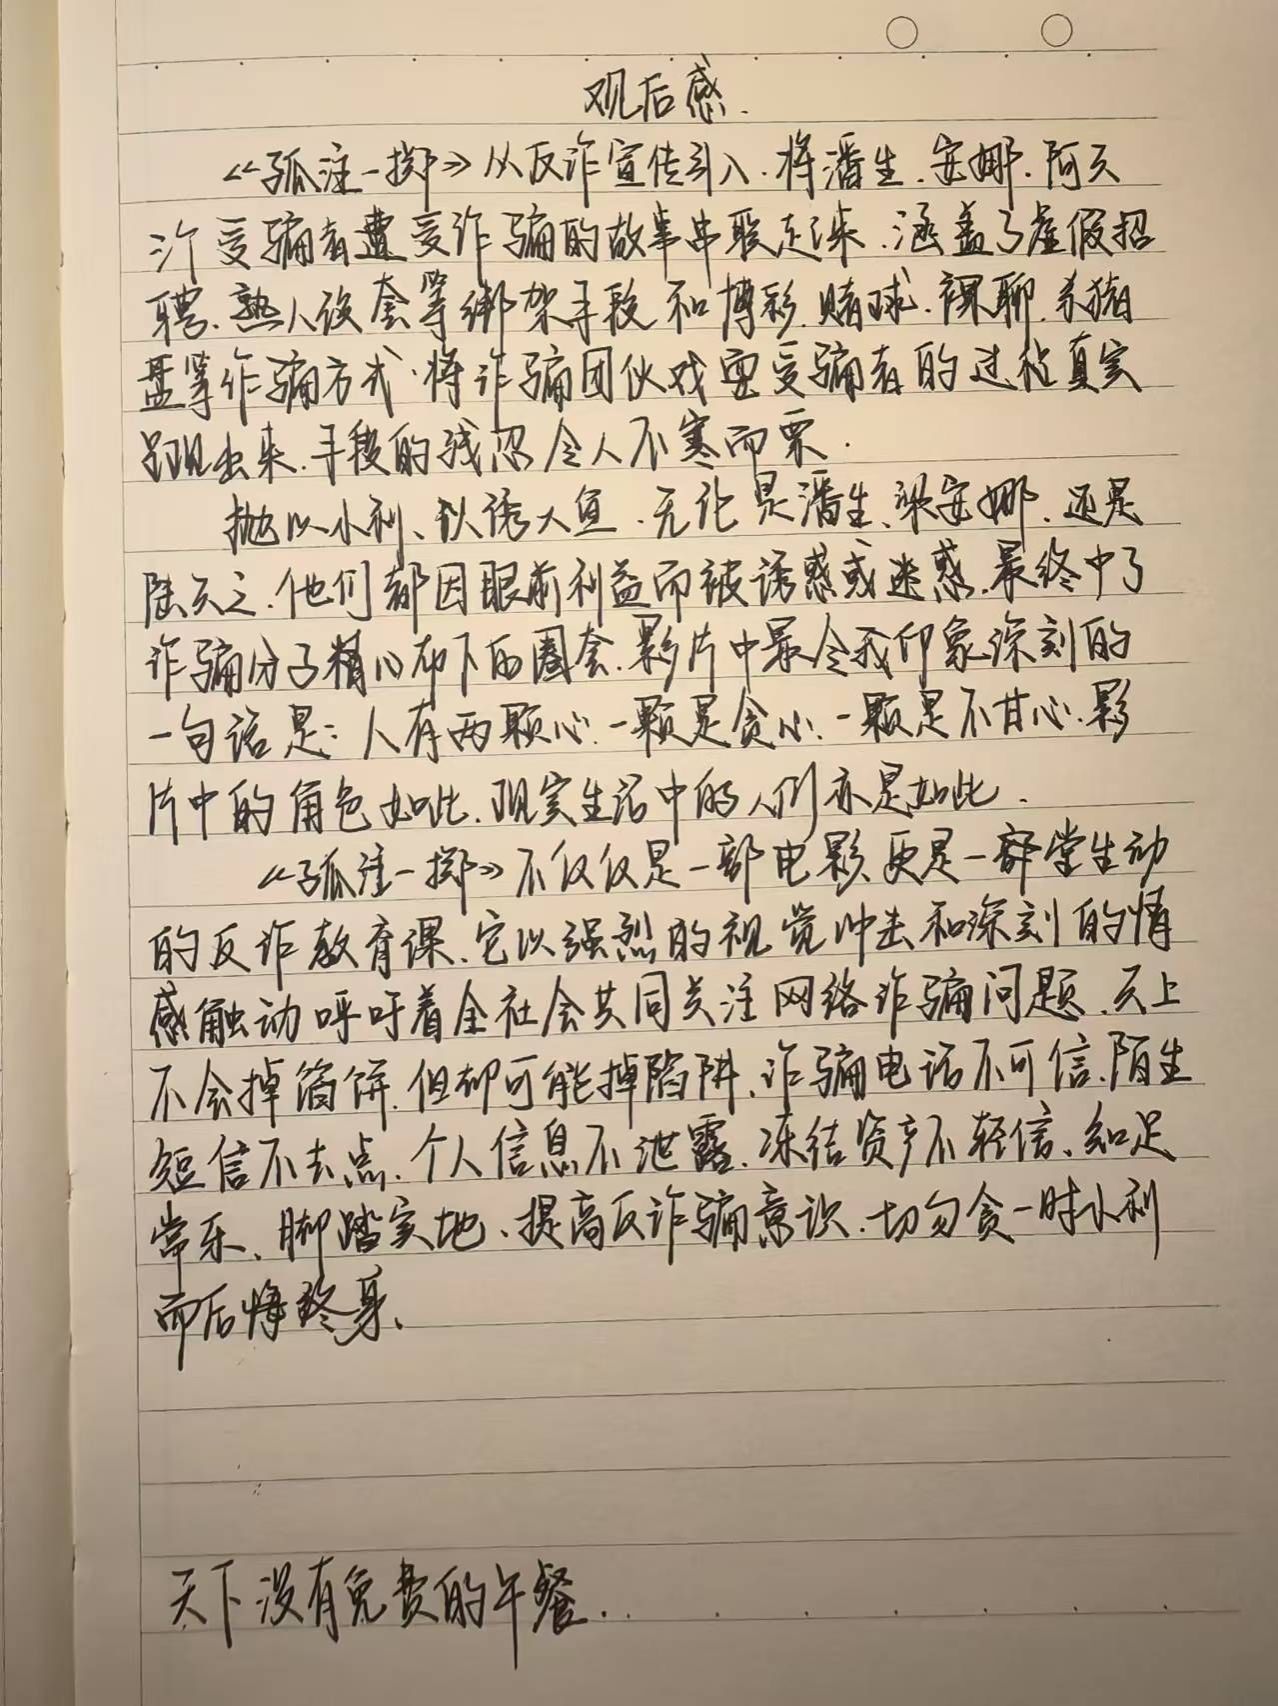 观后感.
《孤注一掷》从反诈宣传引入.将潘生.安娜.阿天
三个受骗者遭受诈骗的故事串联起来.涵盖了虚假招
聘.熟人设套等绑架手段和博彩.赌球.裸聊.杀猪
盘等诈骗方式.将诈骗团伙戏耍受骗者的过程真实
呈现出来.手段的残忍令人不寒而栗.
抛以小利、以诱大鱼.无论是潘生、梁安娜.还是
陆天之.他们都因眼前利益而被诱惑或迷惑.最终中了
诈骗分子精心布下的圈套.影片中最令我印象深刻的
一句话是:人有两颗心.一颗是贪心、一颗是不甘心.影
片中的角色如此.现实生活中的人们亦是如此.
《孤注一掷》不仅仅是一部电影.更是一堂生动
的反诈教育课、它以强烈的视觉冲击和深刻的情
感触动呼吁着全社会共同关注网络诈骗问题.天上
不会掉馅饼.但却可能掉陷阱、诈骗电话不可信、陌生
短信不去点.个人信息不泄露.冻结资产不轻信、知足
常乐、脚踏实地、提高反诈骗意识.切勿贪一时小利
而后悔终身、
天下没有免费的午餐..